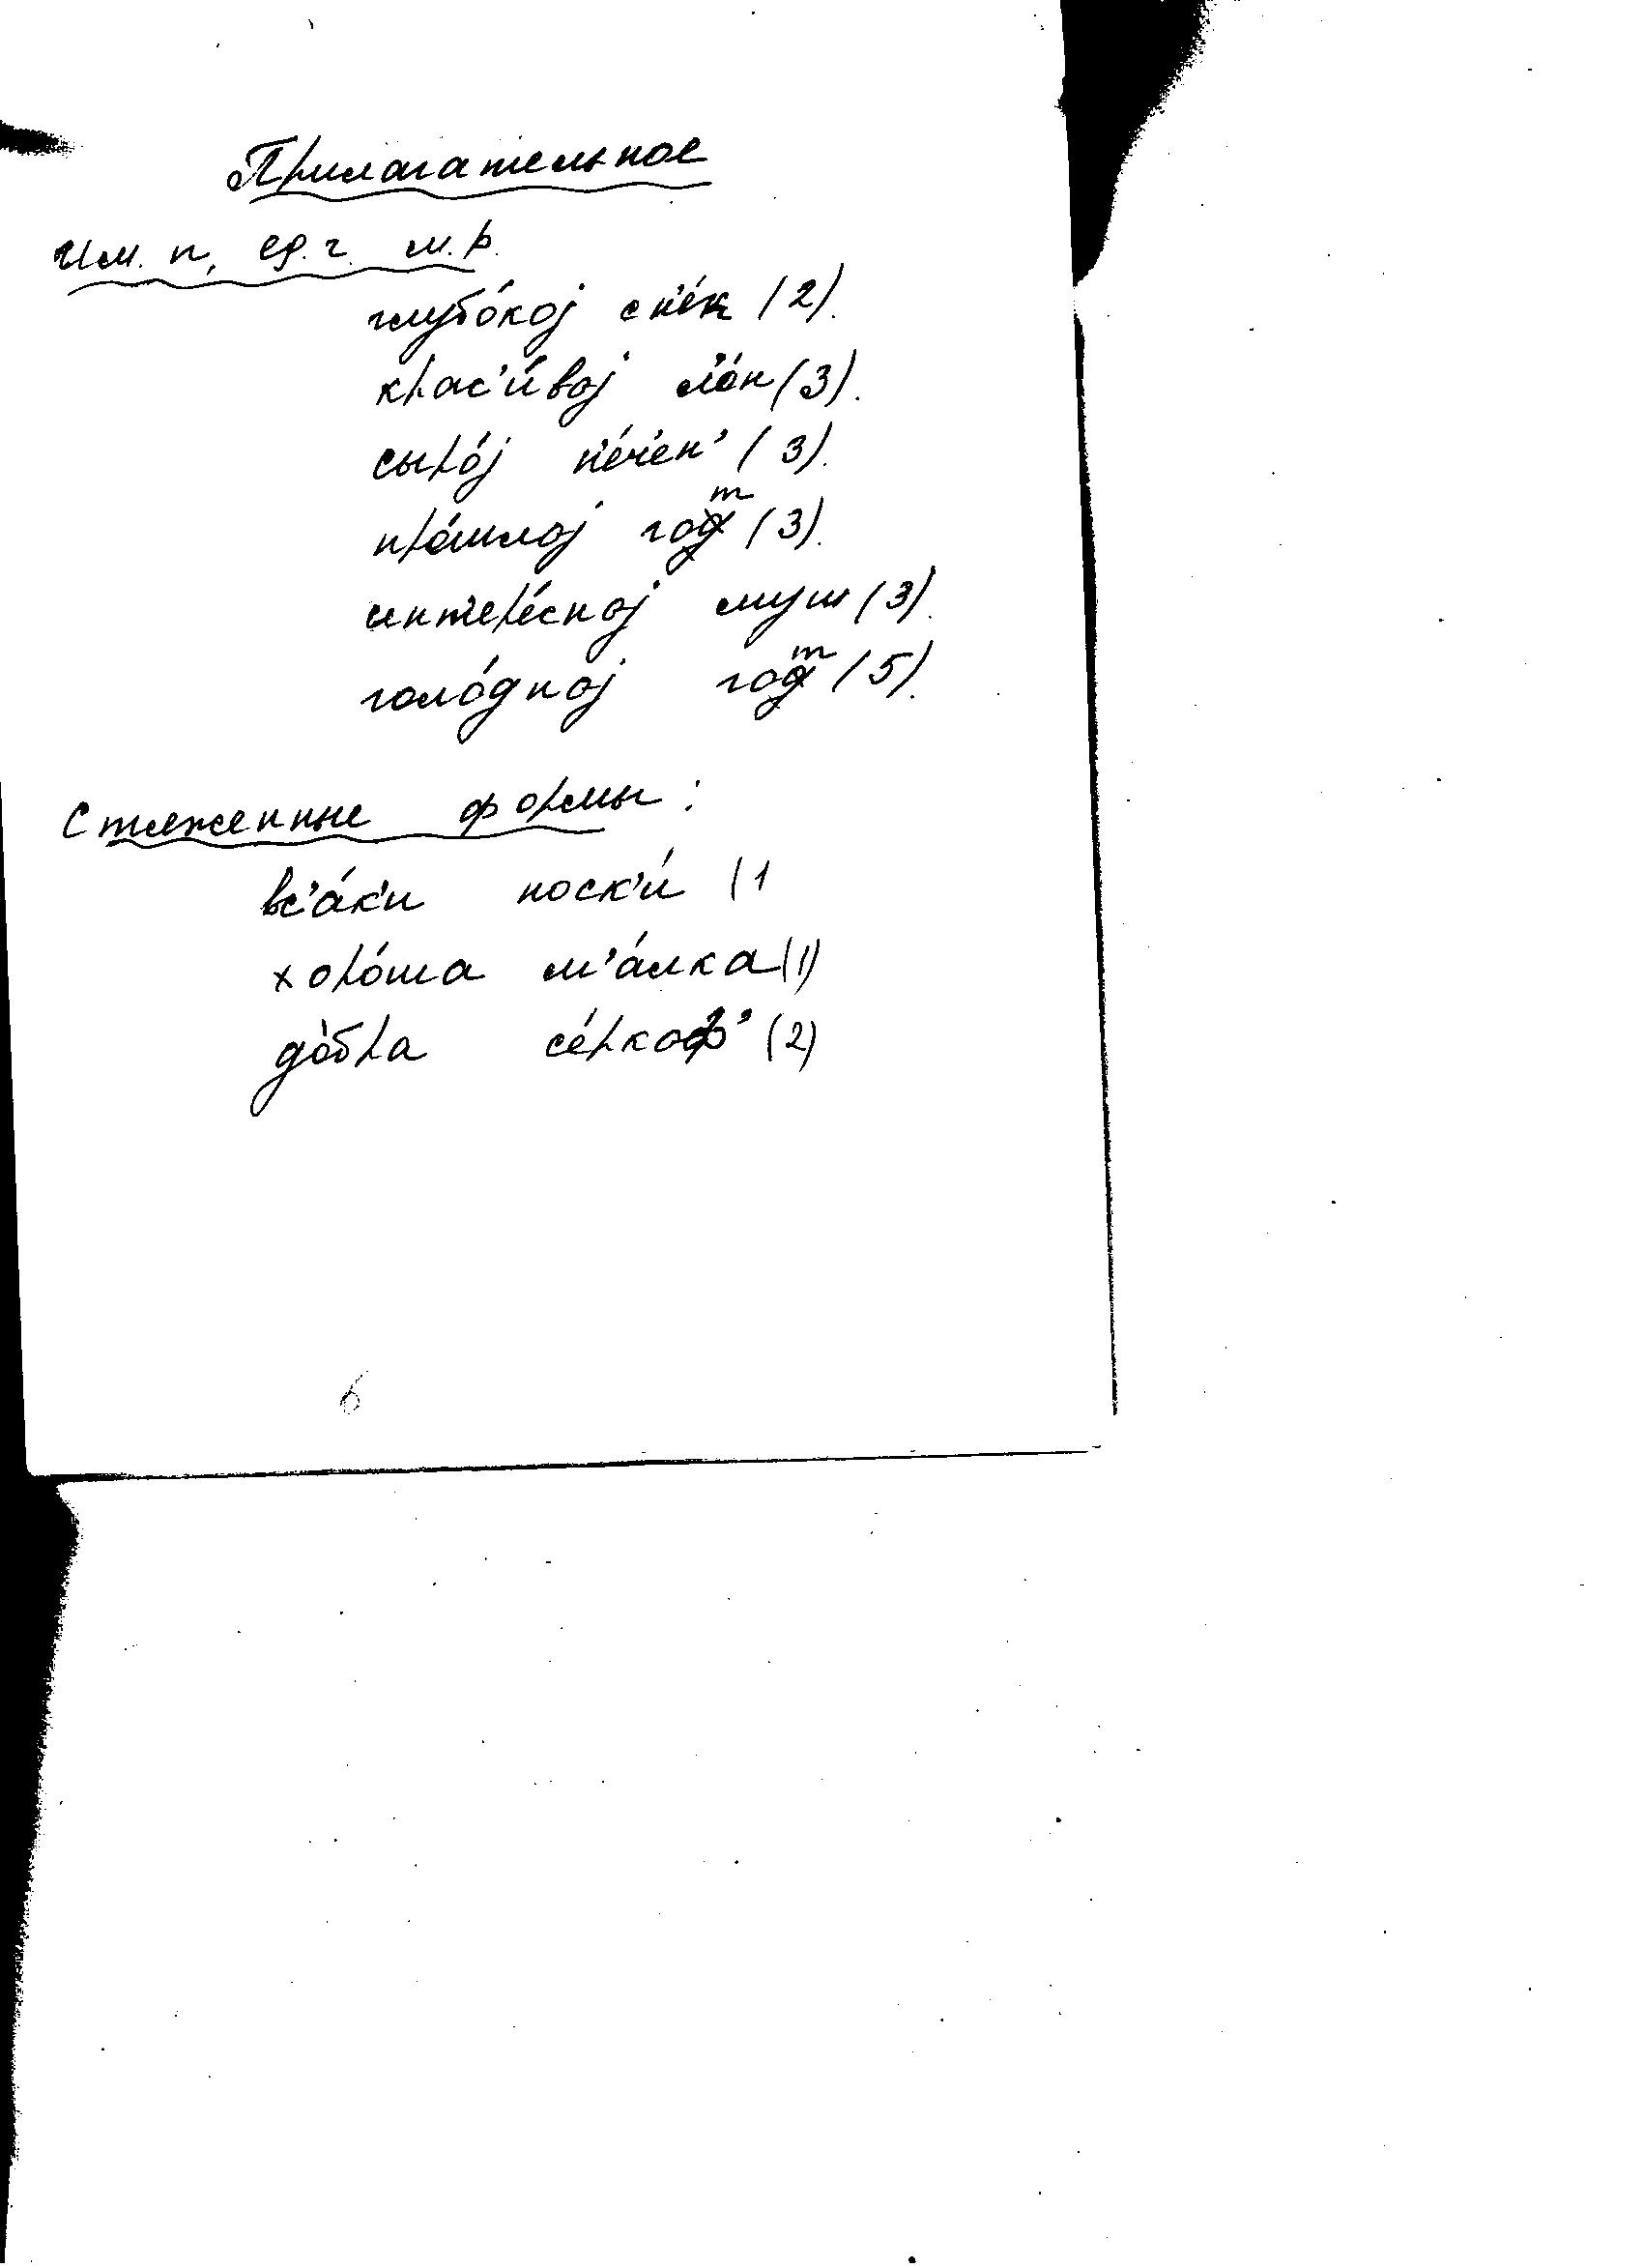 Прилагательное
Им. п, ед. ч. м. р.
глубо́кој с н'е́к (2).
крас'и́вој л'о́н (3).
сыро́ј п'е́ч'ен' (3).
про́шлој гот (3).
инт'ер'е́сној муш (3).
голо́дној гот (5).
Стяженные формы:
вс'а́к'и носк'и́ (1
хоро́ша м'а́лка (1)
до́бра се́ркоф' (2)
6